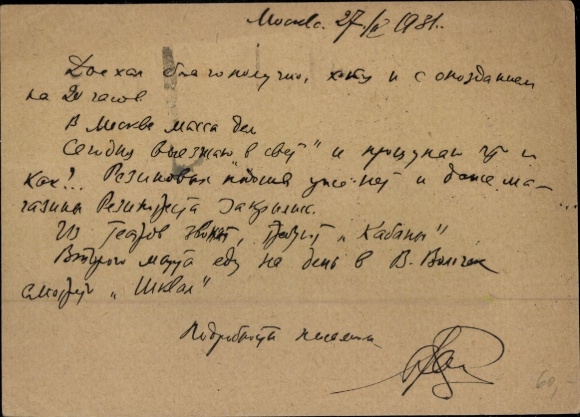 Москва. 27/II 1931.
Доехал благополучно, хотя и с опозданием
на 20 часов.
В Москве масса дел
Сегодня выезжаю "в свет" и прощупаю что и
как?.. Резиновых подошв уже нет и даже ма-
газины Резинтреста закрылись.
Из театров звонят, требуют "Кабаны"
Второго марта еду на день в В. Волочек
смотреть "Шквал"
Подробности письмом
60,-